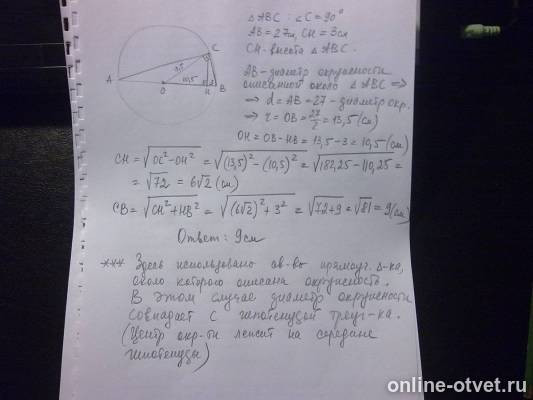 △ABC: ∠C = 90°
AB = 27см, CH = 3см
CH - высота △ABC.
C
13,5
A
10,5
O
H
3
B
AB - диаметр окружности
описанной около △ABC ⟹
⟹ d = AB = 27 - диаметр окр.
⟹ r = OB = 27/2 = 13,5 (см)
OH = OB - HB = 13,5 - 3 = 10,5 (см)
CH = √(OC² - OH²) = √((13,5)² - (10,5)²) = √(182,25 - 110,25) =
= √72 = 6√2 (см)
CB = √(CH² + HB²) = √((6√2)² + 3²) = √(72 + 9) = √81 = 9 (см)
Ответ: 9см
*** Здесь использовано св-во прямоуг. △-ка,
около которого описана окружность.
В этом случае диаметр окружности
совпадает с гипотенузой треуг-ка.
(Центр окр-ти лежит на середине
гипотенузы)
online-otvet.ru